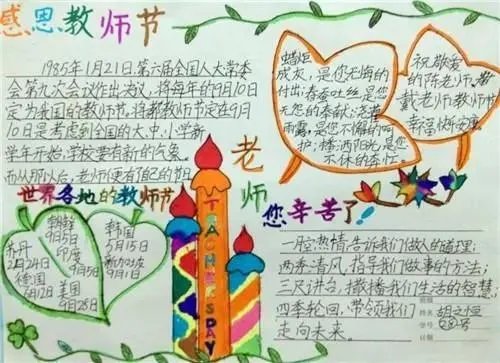 感恩教师节
1985年1月21日,第六届全国人大常委
会第九次会议作出决议,将每年的9月10日
定为我国的教师节,将教师节定在9月
10日是考虑到全国的大、中、小学新
学年开始,学校要有新的气象。
而从那以后,老师便有自己的节日
世界各地的教师节
朝鲜
9月5日
印度
9月5日
苏丹
2月24日
德国
6月12日
美国
9月28日
韩国
5月15日
新加坡
9月1日
TEACHER'S DAY
蜡炬
成灰,是您无悔的
付出;春蚕吐丝,是您
无怨的奉献;
雨露,是您不倦的呵
护;播洒阳光,是您
不休的奉
祝敬爱
的陈老师、
戴老师教师节
幸福快乐安康
老师
您辛苦了!
一腔热情,告诉我们做人的道理;
两季清风,指导我们做事的方法;
三尺讲台,撒播我们生活的智慧;
四季轮回,带领我们
走向未来。
班级
姓名 胡文恒
学号 28号
日期